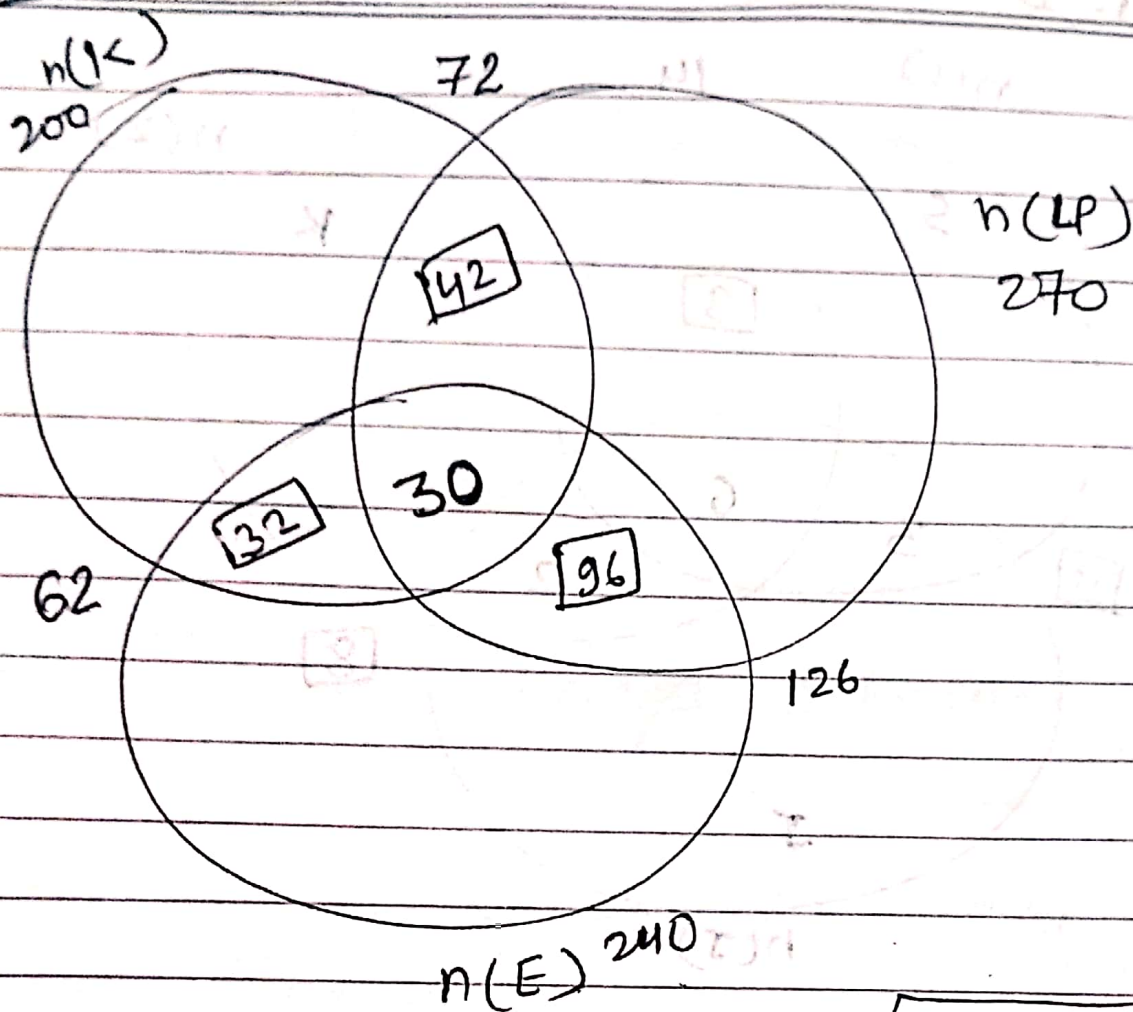 n(K)
200
72
n(LP)
270
42
30
32
96
62
126
n(E) 240